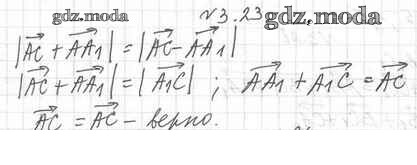 gdz.moda №3.23 gdz.moda
|AC⃗ + AA₁⃗| = |AC⃗ - AA₁⃗|
|AC⃗ + AA₁⃗| = |A₁C⃗| ; AA₁⃗ + A₁C⃗ = AC⃗
AC⃗ = AC⃗ - верно.